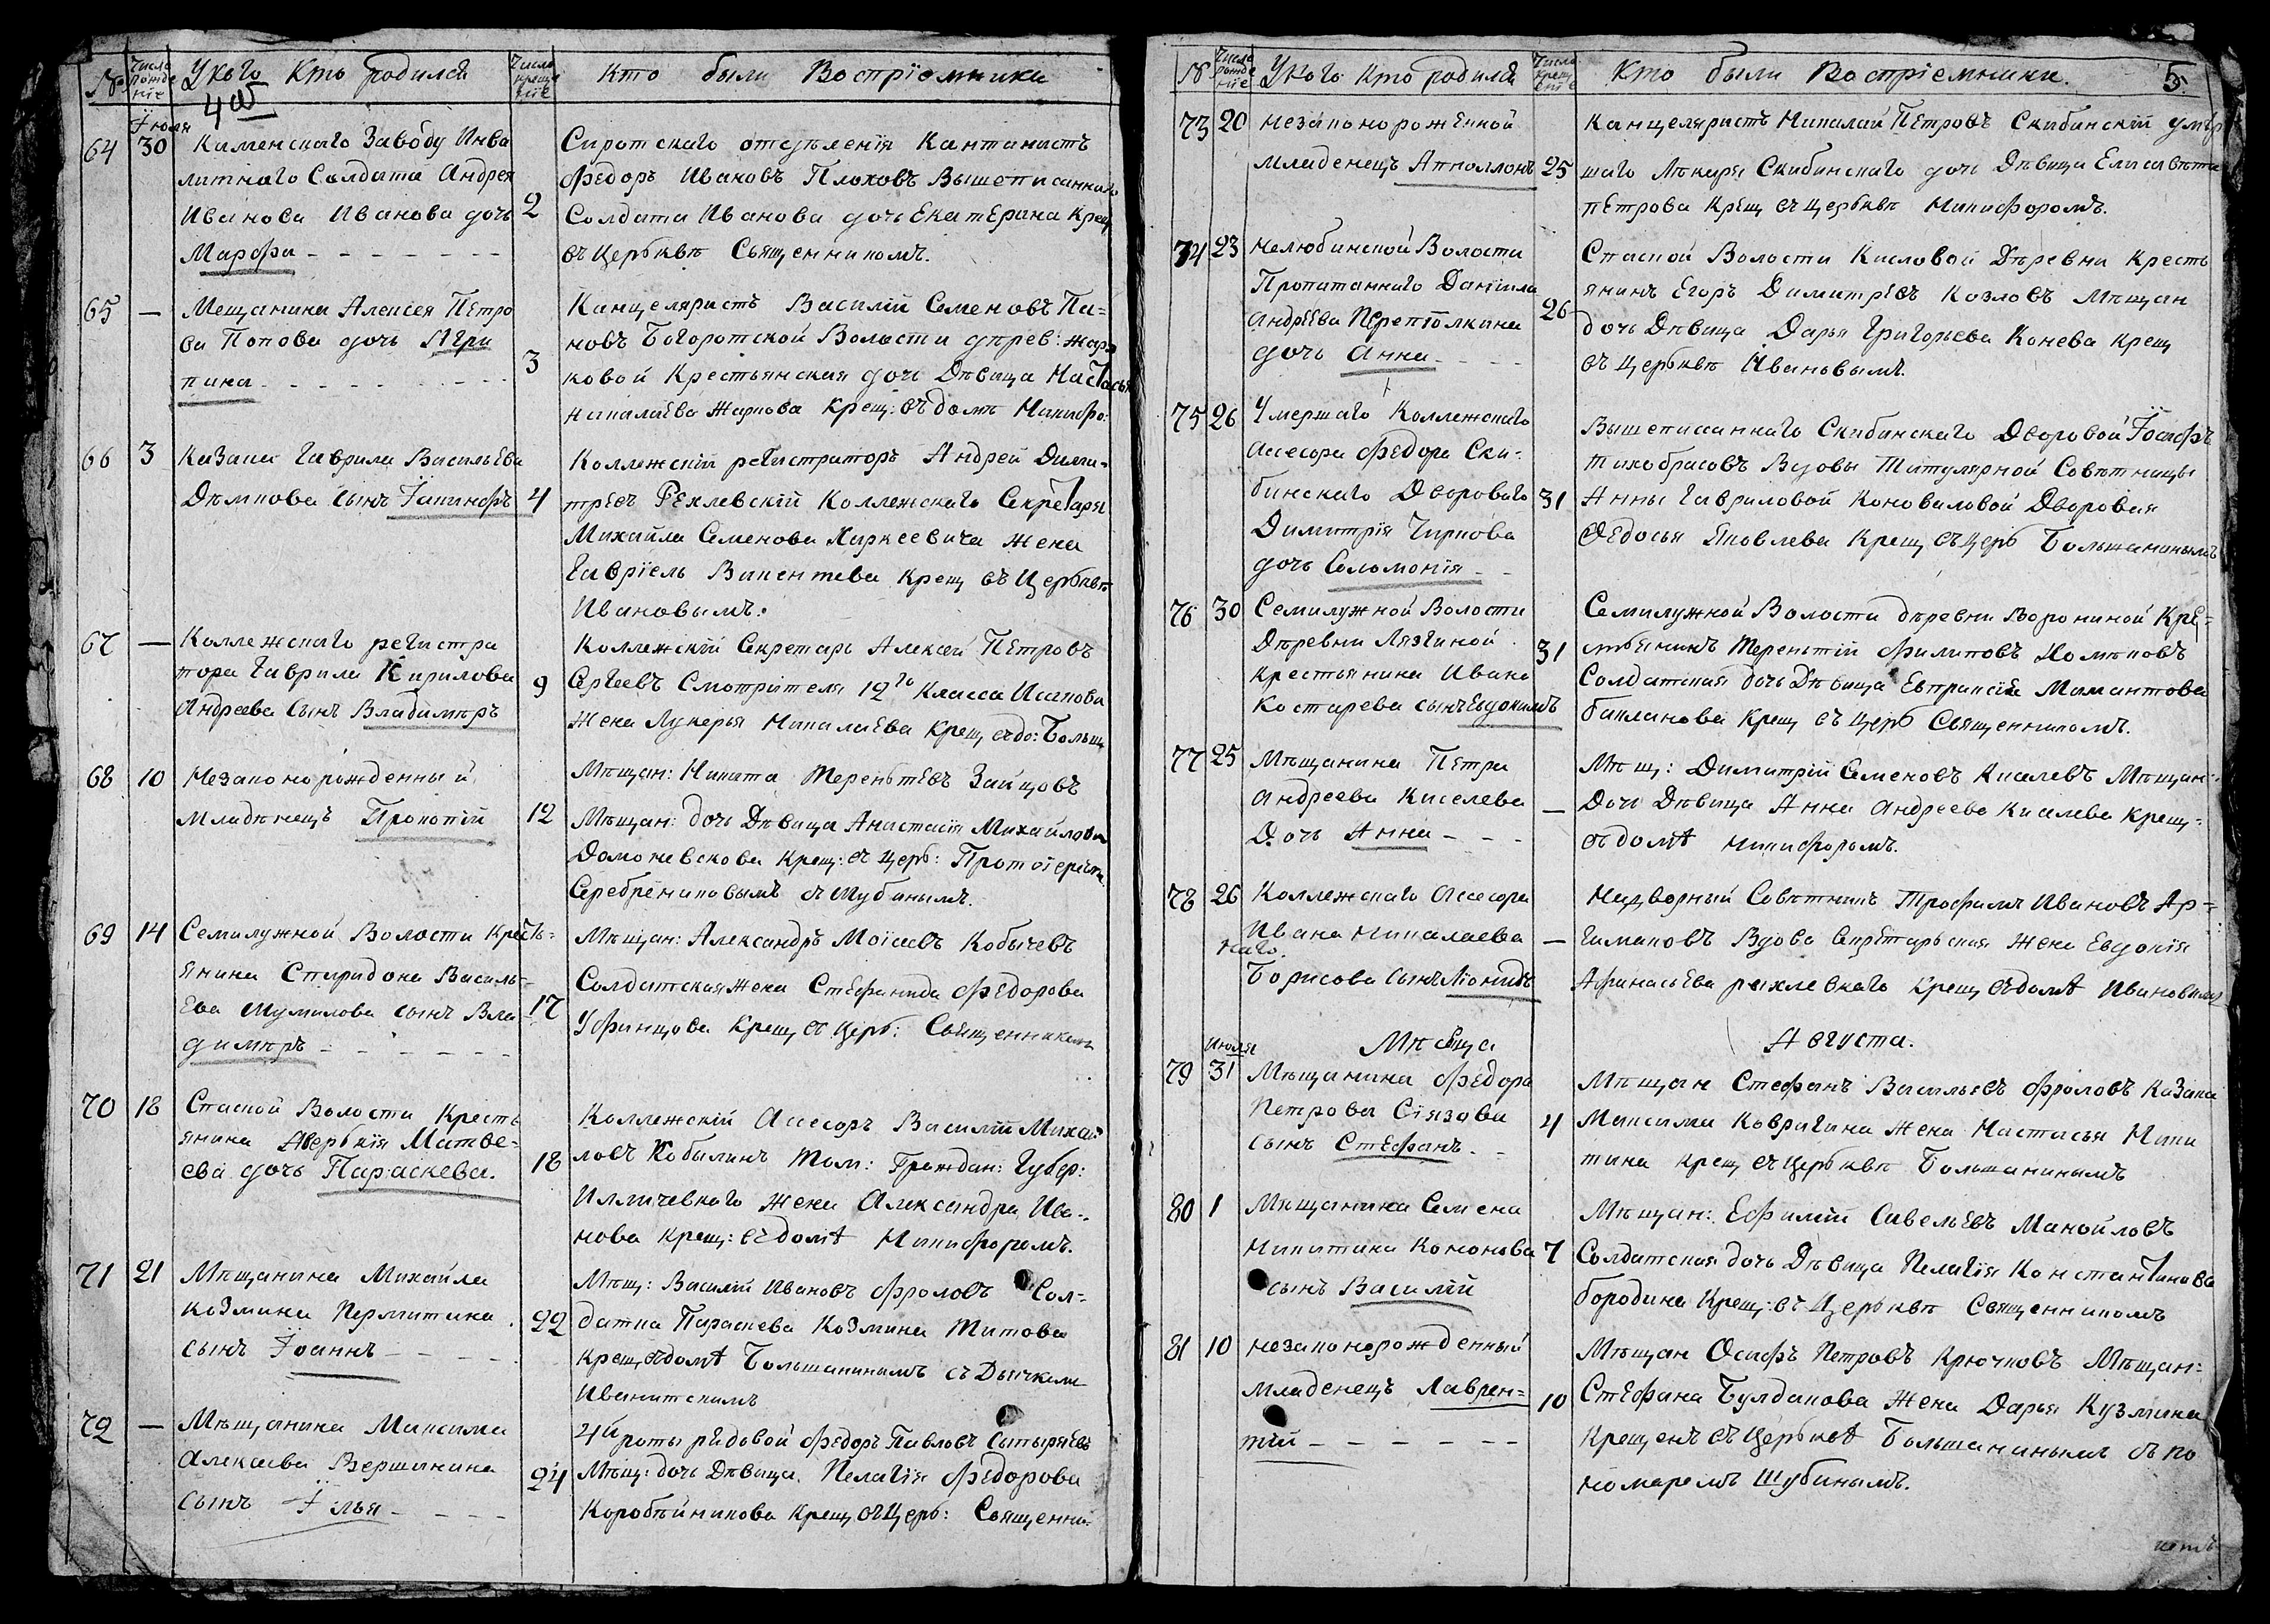 № Число рожденіе У кого Кто родился Число крещеніе Кто были Воспріомники
4 об
Іюля
64 30 Каменскаго Заводу Инва
литнаго Солдата Андрея
Иванова Иванова дочь 2
Марфа
Сиротскаго отдѣленія Кантанистъ
Федоръ Ивановъ Плоховъ Вышеписаннаго
Солдата Иванова дочь Екатерина Крещ
въ Церьквѣ Священникомъ.
65 — Мещанина Алексея Петро
ва Попова дочь Агри 3
пина
Канцеляристъ Василій Семеновъ Па=
новъ Богоротской Волости дерев: Жар
ковой Крестьянская дочь Дѣвица Настасья
Николаева Жаркова Крещ: въ домѣ Никифо:
66 3 Казака Гаврила Васильева
Демпова сынъ Іакинфъ 4
Коллежскій регистраторъ Андрей Дими=
тріевъ Рехлевскій Коллежскаго Секретаря
Михайла Семенова Харкеевича жена
Гавріель Викентева Крещ въ Церьквѣ
Ивановымъ.
67 — Коллежскаго регистра
тора Гаврила Кирилова 9
Андреева Сынъ Владимѣръ
Коллежскій Секретарь Алексей Петровъ
Сергеевъ Смотрителя 12го Класса Исакова
Жена Лукерья Николаева Крещ въ до: Больш
68 10 Незаконорожденный
младенецъ Прокопій 12
Мѣщан: Никита Терентьевъ Зайцовъ
Мѣщан: дочь Дѣвица Анастасія Михайлова
Домоневскова Крещ: въ Церь: Протоіереемъ
Серебрениковымъ съ Шубинымъ.
69 14 Семилужной Волости Кресть=
янина Спиридона Василь=
ева Шумилова сынъ Вла 17
димѣръ
Мѣщан: Александръ Моісеевъ Кобычевъ
Солдатская Жена Стефанида Федорова
Уфинцова Крещ въ Церь: Священникомъ
70 18 Спаской Волости Кресть
янина Аверькія Матве=
ева дочь Параскева. 18
Коллежскій Асесоръ Василій Михай
ловъ Кобылинъ Том: Граждан: Губер:
Илличевкаго жена Александра Ива=
нова Крещ: въ домѣ Никифоромъ.
71 21 Мѣщанина Михайла
Козмина Пермитина 22
сынъ Іоаннъ
Мѣщ: Василій Ивановъ Фроловъ Сол=
датка Параскева Козмина Титова
Крещ въ домѣ Большанинымъ съ Дьячкомъ
Иваницкимъ
72 — Мѣщанина Максима
Алексеева Вершинина 24
сынъ Илья
4й роты рядовой Федоръ Павловъ Сатыревъ
Мѣщ: дочь Дѣвица Пелагія Федорова
Коробейникова Крещ въ Церь: Священни=
№ Число рожденіе У кого Кто родился Число крещеніе Кто были Воспріемники. 5.
73 20 Незаконорожденной
младенецъ Апполлонъ 25
Канцеляристъ Николай Петровъ Скибинскій умер
шаго Лекаря Скибинскаго дочь Дѣвица Елисавѣта
Петрова Крещ въ Церьквѣ Никифоромъ.
74 23 Нелюбинской Волости
Пропитаннаго Даніила 26
Андреева Перепіолкина
дочь Анна
Спаской Волости Кисловой Деревни Кресть
янинъ Егоръ Димитріевъ Козловъ Мѣщан
дочь Дѣвица Дарья Григорьева Конева Крещ
въ Церьквѣ Ивановымъ.
75 26 Умершаго Коллежскаго
Асесора Федора Ски=
бинскаго Двороваго 31
Димитрія Чиркова
дочь Соломонія
Вышеписаннаго Скибинскаго Дворовой Іосифъ
Тихобрасовъ Вдовы Титулярной Совѣтницы
Анны Гавриловой Коноваловой Дворовая
Федосья Яковлева Крещ въ Церь Большанинымъ
76 30 Семилужной Волости
Деревни Лязгиной 31
Крестьянина Ивана
Костарева сынъ Евдокимъ
Семилужной Волости деревни Ворониной Кре=
стьянинъ Терентій Филиповъ Хомяковъ
Солдатская дочь Дѣвица Евпраксія Мамантова
Бакланова Крещ въ Церь Священникомъ.
77 25 Мѣщанина Петра
Андреева Киселева —
Дочь Анна
Мѣщ: Димитрій Семеновъ Киселевъ Мѣщан:
Дочь Дѣвица Анна Андреева Киселева Крещ:
въ домѣ Никифоромъ.
78 26 Коллежскаго Асесора
Ивана Николаева —
Борисова сынъ Ліонидъ
Надворный Совѣтникъ Трофимъ Ивановъ Ар=
гамаковъ Вдова Секретарьская Жена Евдокія
Афанасьева рехлевкаго Крещ въ домѣ Ивановымъ
Мѣсяца Августа.
Июля
79 31 Мѣщанина Федора
Петрова Сіязова 4
сынъ Стефанъ
Мѣщан Стефанъ Васильевъ Фроловъ Казака
Максима Ковригина Жена Настасья Ники
тина Крещ въ Церьквѣ Большанинымъ
80 1 Мѣщанина Семена
Никитина Кононова 7
сынъ Василій
Мѣщан: Ефимій Савельевъ Манойловъ
Солдатская дочь Дѣвица Пелагія Константинова
бородина Крещ: въ Церьквѣ Священникомъ
81 10 Незаконорожденный
младенецъ Лаврен= 10
тій
Мѣщан Осифъ Петровъ Крючковъ Мѣщан:
Стефана Булдакова Жена Дарья Кузмина
Крещенъ въ Церьквѣ Большанинымъ съ по
номаремъ Шубинымъ.